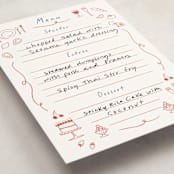 Menu
Starter
chopped salad with
sesame garlic dressing
Entree
Steamed dumplings
with pork and prawns
Spicy Thai Stir-fry
Dessert
Sticky Rice Cake with
Coconut